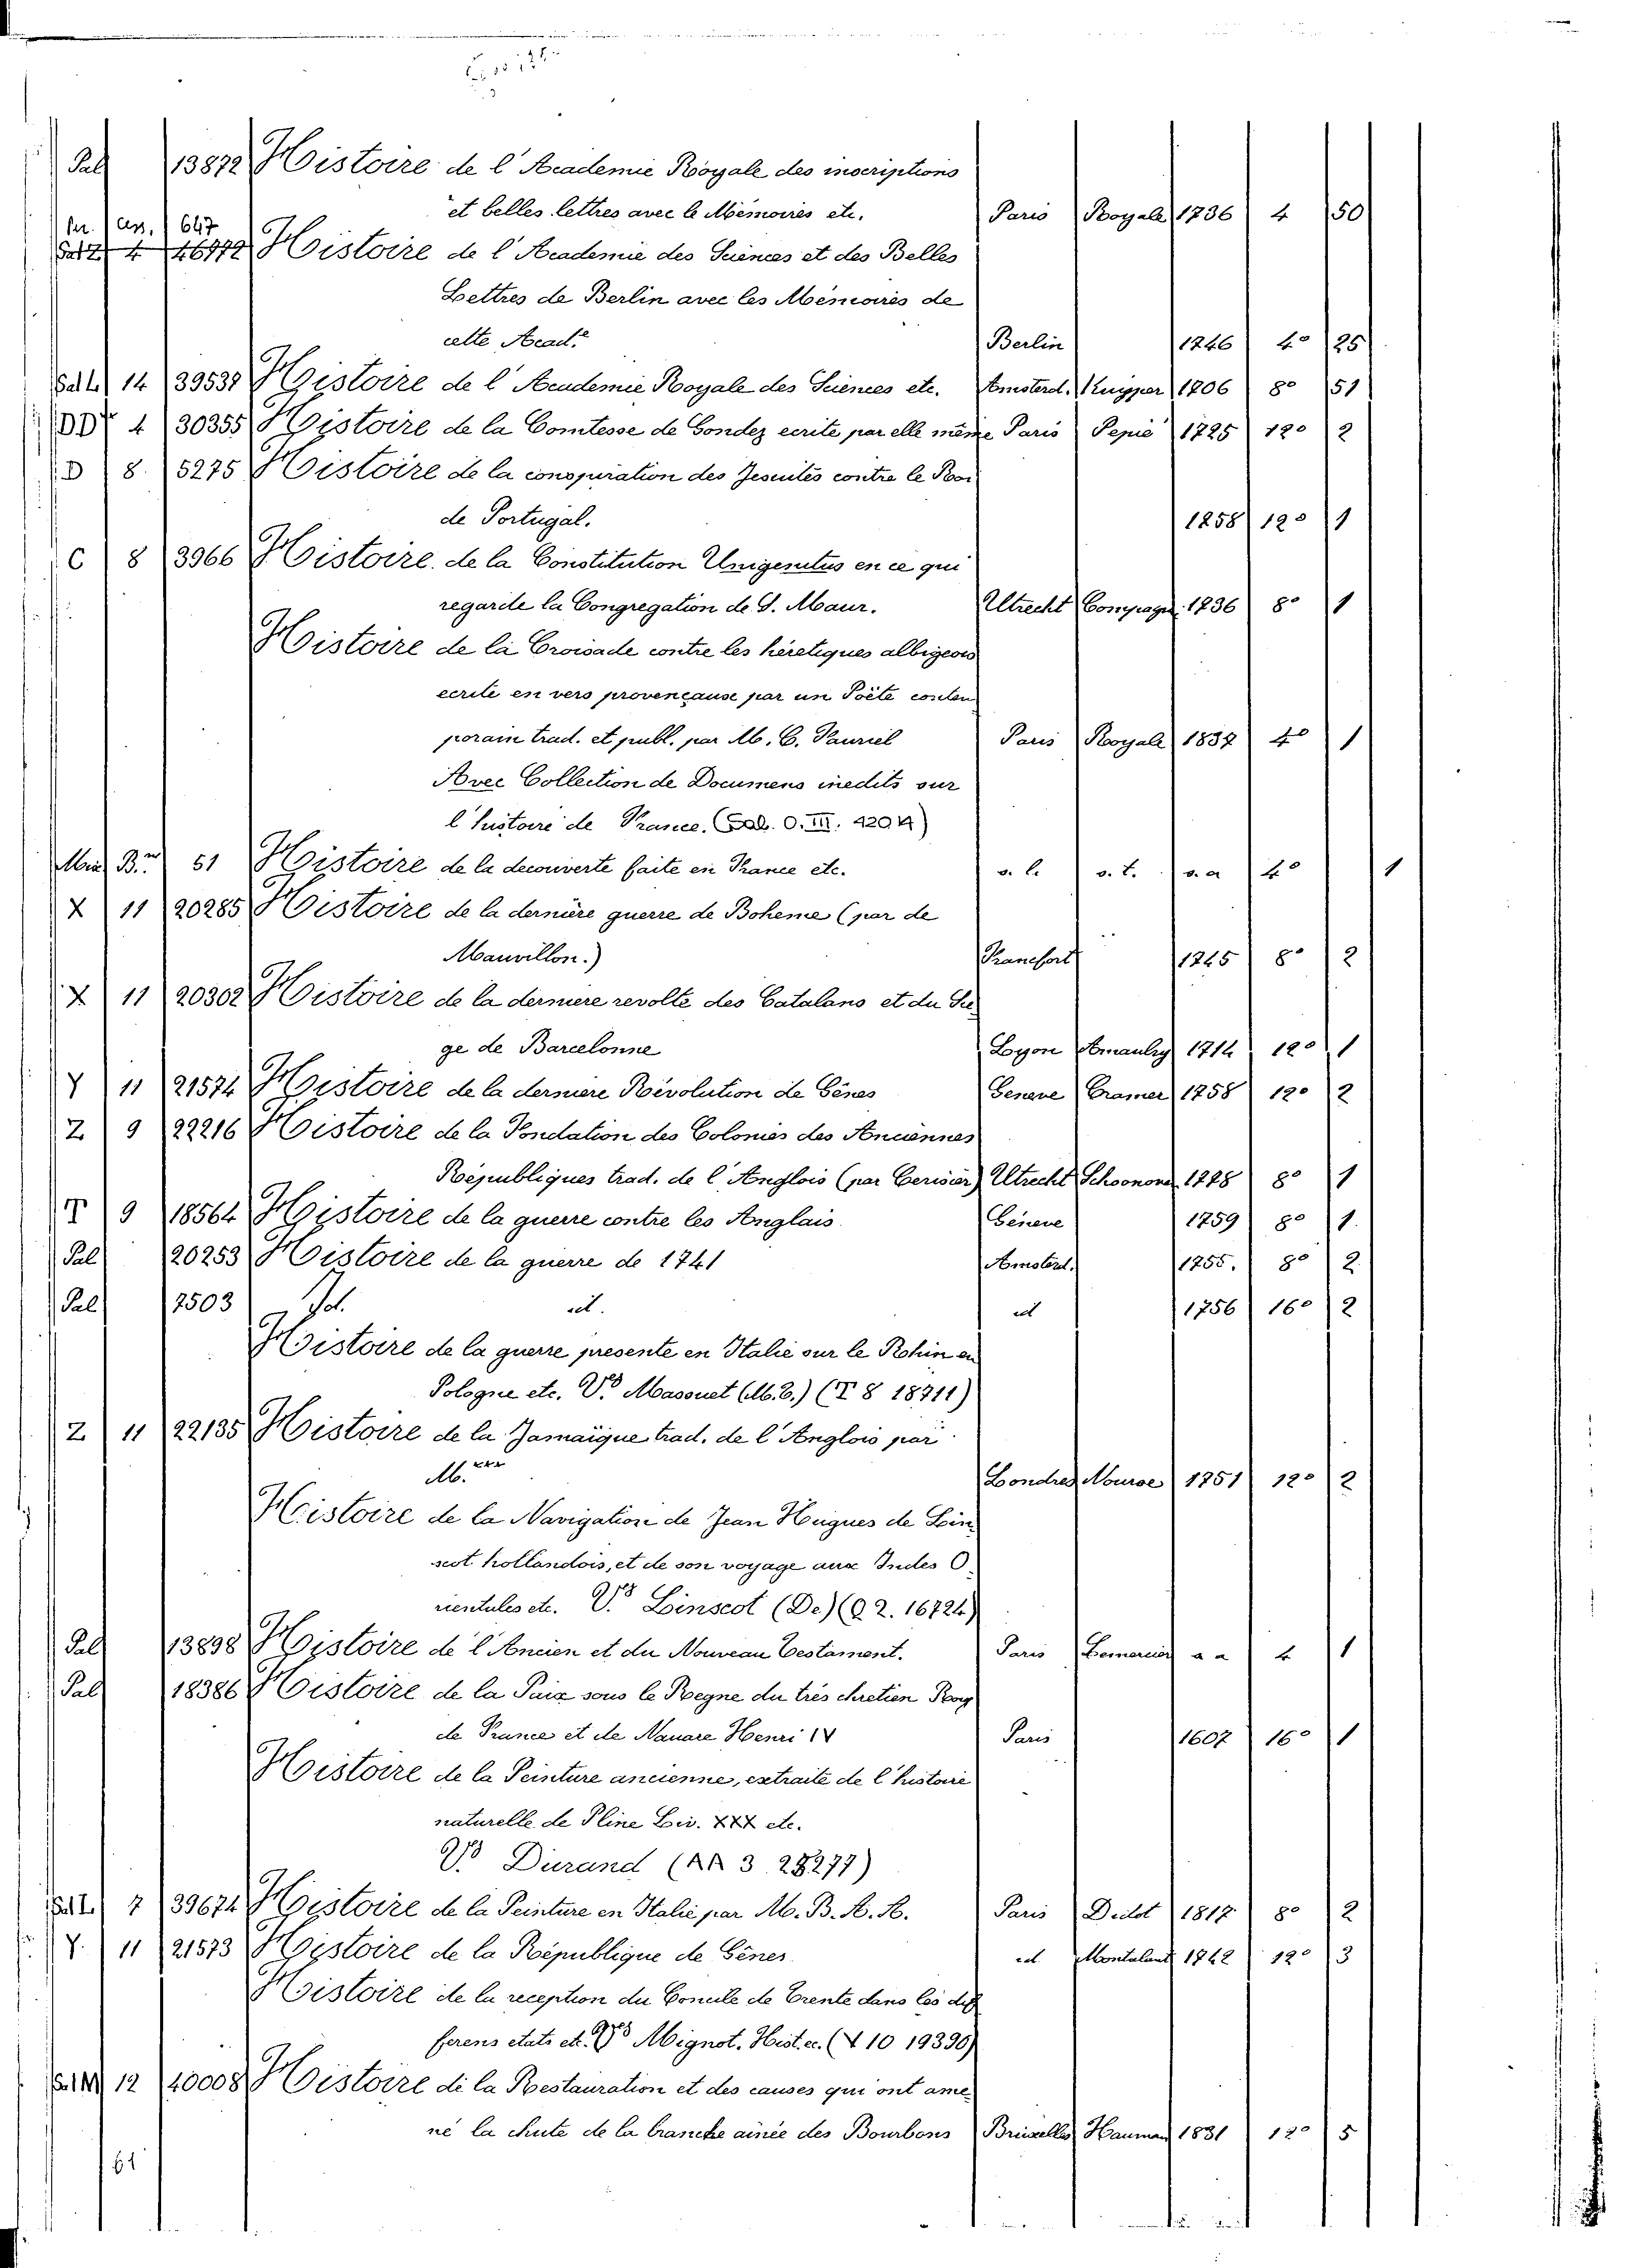 Sal 13872 Histoire de l'Academie Royale des inscriptions
et belles lettres avec le Mémoires etc. Paris Royale 1736 4 50
647
Histoire de l'Academie des Sciences et des Belles
Lettres de Berlin avec les Mémoires de
cette Acad.e Berlin 1746 4° 25
14 39531 Histoire de l'Academie Royale des Sciences etc. Amsterd. Kuyper 1706 8° 51
DD 4 30355 Histoire de la Comtesse de Gondez ecrite par elle même Paris Pepié 1725 12° 2
D 8 5275 Histoire de la conspiration des Jesuites contre le Roi
de Portugal. 1758 12° 1
C 8 3966 Histoire de la Constitution Unigenitus en ce qui
regarde la Congregation de S. Maur. Utrecht Compagn. 1736 8° 1
Histoire de la Croisade contre les héretiques albigeois
ecrite en vers provençaux par un Poëte contem
porain trad. et publ. par M. C. Fauriel Paris Royale 1837 4° 1
Avec Collection de Documens inedits sur
l'histoire de France. (Sal. O. III. 420.14)
51 Histoire de la decouverte faite en France etc. s. l. s. t. s. a 4° 1
X 11 20285 Histoire de la dernière guerre de Boheme (par de
Mauvillon.) Francfort 1745 8° 2
X 11 20302 Histoire de la derniere revolte des Catalans et du Sie
ge de Barcelonne Lyon Amaulry 1714 12° 1
Y 11 21574 Histoire de la derniere Révolution de Gênes Geneve Cramer 1758 12° 2
Z 9 22216 Histoire de la Fondation des Colonies des Anciennes
Républiques trad. de l'Anglois (par Cerisier) Utrecht Schoonove 1778 8° 1
T 9 18564 Histoire de la guerre contre les Anglais Géneve 1759 8° 1.
Sal 20253 Histoire de la guerre de 1741 Amsterd. 1755. 8° 2.
Sal 7503 Id. id. id 1756 16° 2
Histoire de la guerre presente en Italie sur le Rhin en
Pologne etc. V.s Massuet (M. P.) (T 8 18711)
Z 11 22135 Histoire de la Jamaïque trad. de l'Anglois par
M.*** Londres Nourse 1751 12° 2
Histoire de la Navigation de Jean Hugues de Lin
scot hollandois, et de son voyage aux Indes O
rientales etc. V.s Linscot (De) (Q 2. 16724)
Sal 13898 Histoire de l'Ancien et du Nouveau Testament. Paris Lemercier a a 4 1
Sal 18386 Histoire de la Paix sous le Regne du très chretien Roy
de France et de Navare Henri IV Paris 1607 16° 1
Histoire de la Peinture ancienne, extraite de l'histoire
naturelle de Pline Liv. XXX etc.
V.s Durand (AA 3 28277)
7 39674 Histoire de la Peinture en Italie par M. B. A. A. Paris Didot 1817 8° 2
Y. 11 21573 Histoire de la République de Gênes id. Montalant 1742 12° 3
Histoire de la reception du Concile de Trente dans les dif
ferens etats etc. V.s Mignot. Hist. ec. (V 10 19330)
12 40008 Histoire de la Restauration et des causes qui ont ame
né la chute de la branche ainée des Bourbons Bruxelles Hauman 1831 12° 5
61